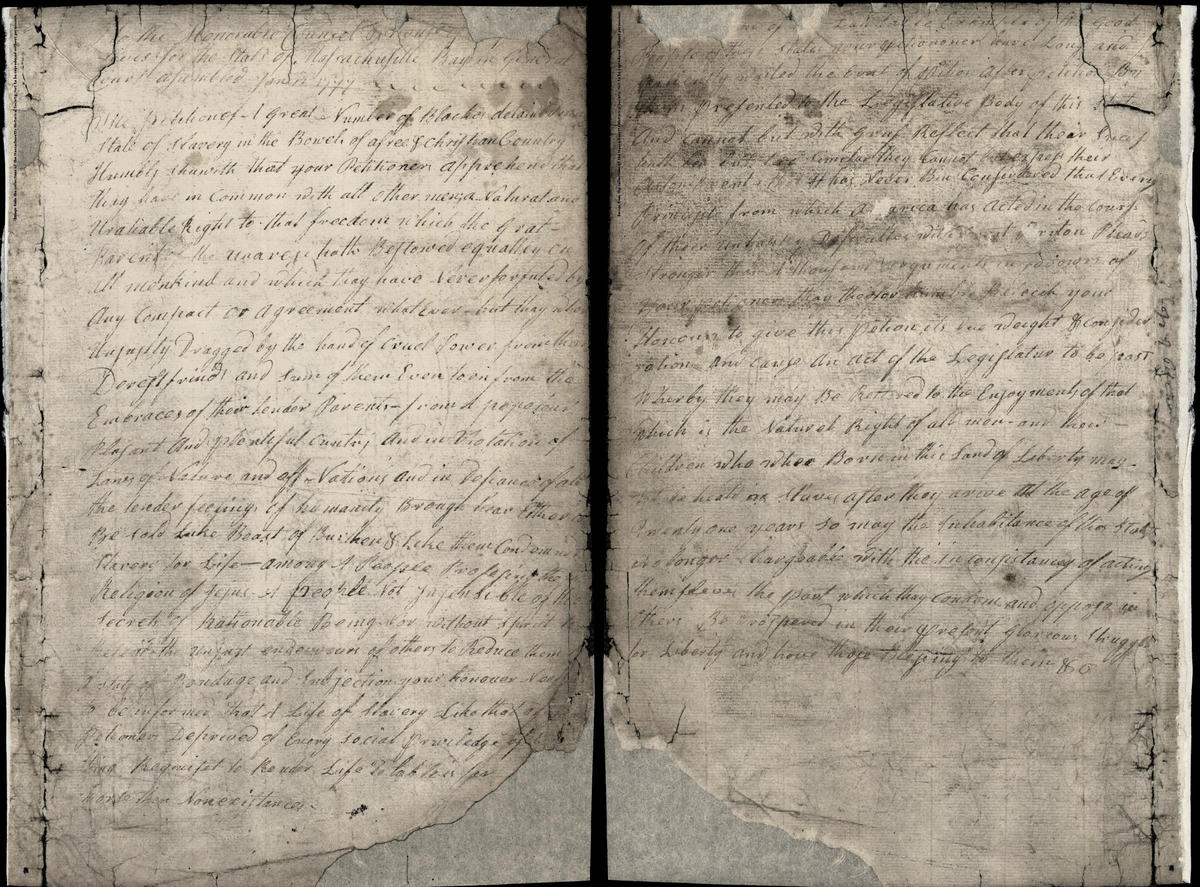 To the Honorable Counsel & House
for the State of Massachusitte Bay in General
Court assembled Jan
The petition of A Great Number of Blackes detained in
State of Slavery in the Bowels of a free & christian Country
Humbly shuwith that your Petitioners Apprehend that
Thay have in Common with all other men a Natural and
Unaliable Right to that freedom which the Grat
Parent of the Unavese hath Bestowed equalley on
All menkind and which they have Never forfuted by
Any Compact or Agreement whatever but thay wher
Unjustly Dragged by the hand of cruel Power from their
Derest frinds and sum of them Even torn from the
Embraces of their tender Parents from A popolous
Plasant And plentiful cuntry And in Violation of
Laws of Nature and off Nations and in defiance of all
the tender feelings of humanity Brough hear Either to
Be sold Like Beast of Burthen & Like them Condemned
Slavery for Life among A People Profesing the
Religion of Jesus A people Not Insensible of the
Secrets of Rationable Being Nor without spirit to
the unjust endeavours of others to Reduce them
A state of Bondage and Subjection your honouer Need
to be informed that A Life of Slavery Like that of
Petioners Deprived of Every social Priviledge of
Requiset to Render Life Tolable is far
worse then Nonexistance
Example of the Good
People of these States your petiononers have Long and
waited the Evnt of petition after petition By
them Presented to the Legislative Body of this State
And cannot but with Grief Reflect that their Sucess
hath ben but too similar they Cannot but express their
Astonishment that It has Never Bin Considered that Every
Principle from which Amarica has Acted in the Cours
of their unhappy Deficultes with Great Briton Pleads
Stronger than A thousand arguments in favowrs of
your petioners they therfor humble Beseech your
Honours to give this petion its due weight & consider
ration And cause An act of the Legislatur to be past
Wherby they may Be Restored to the Enjoyments of that
which is the Naturel Right of all men and their
Children who wher Born in this Land of Liberty may
be heald as Slaves after they arive at the age of
Twenty one years so may the Inhabitance of this State
No longer chargeable with the inconsistancey of acting
themselves the part which they condem and oppose in
others Be prospered in their present Glorious struggle
for Liberty and have those Blessing to them &c